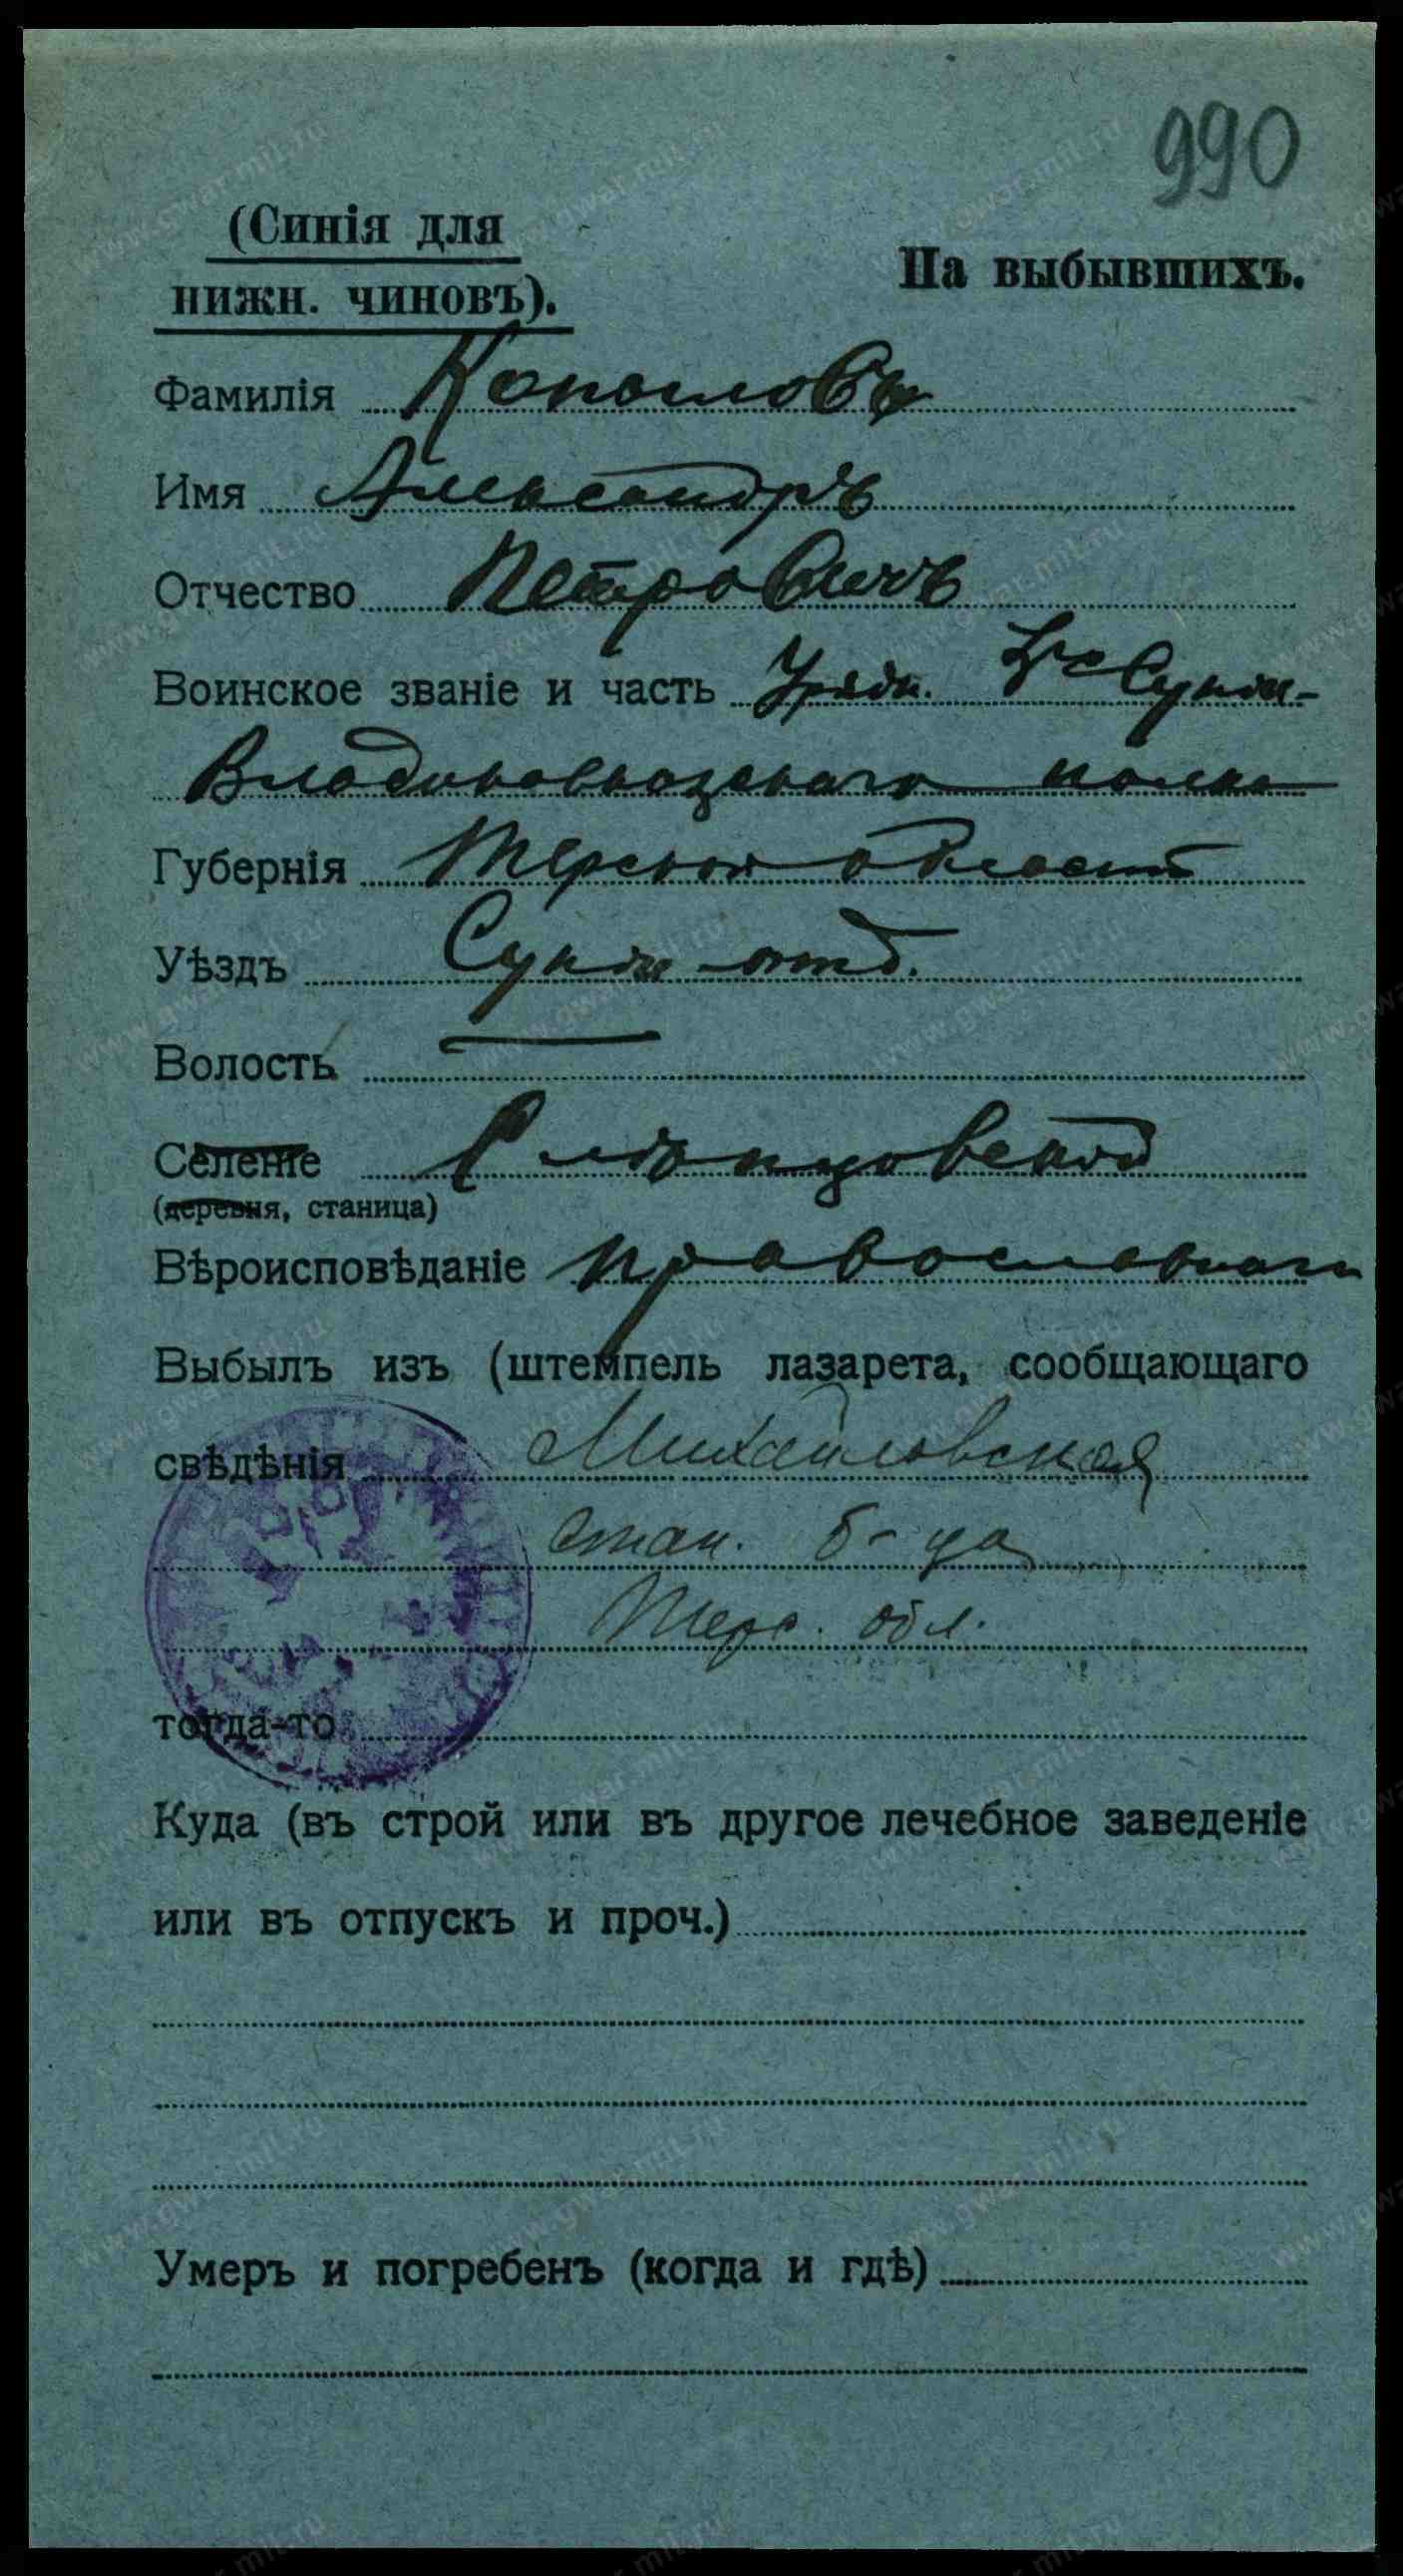 990
(Синія для
нижн. чиновъ).
На выбывшихъ.
Фамилія Копыловъ
Имя Александръ
Отчество Петровичъ
Воинское званіе и часть Урядн. Сунж.-
Владикавказскаго полка
Губернія Терской области
Уѣздъ Сунж. отд.
Волость —
Селеніе Слѣпцовской
(деревня, станица)
Вѣроисповѣданіе православнаго
Выбылъ изъ (штемпель лазарета, сообщающаго
свѣдѣнія Михайловская
стан. б-ца
Терс. обл.
тогда-то
Куда (въ строй или въ другое лечебное заведеніе
или въ отпускъ и проч.)
Умеръ и погребенъ (когда и гдѣ)